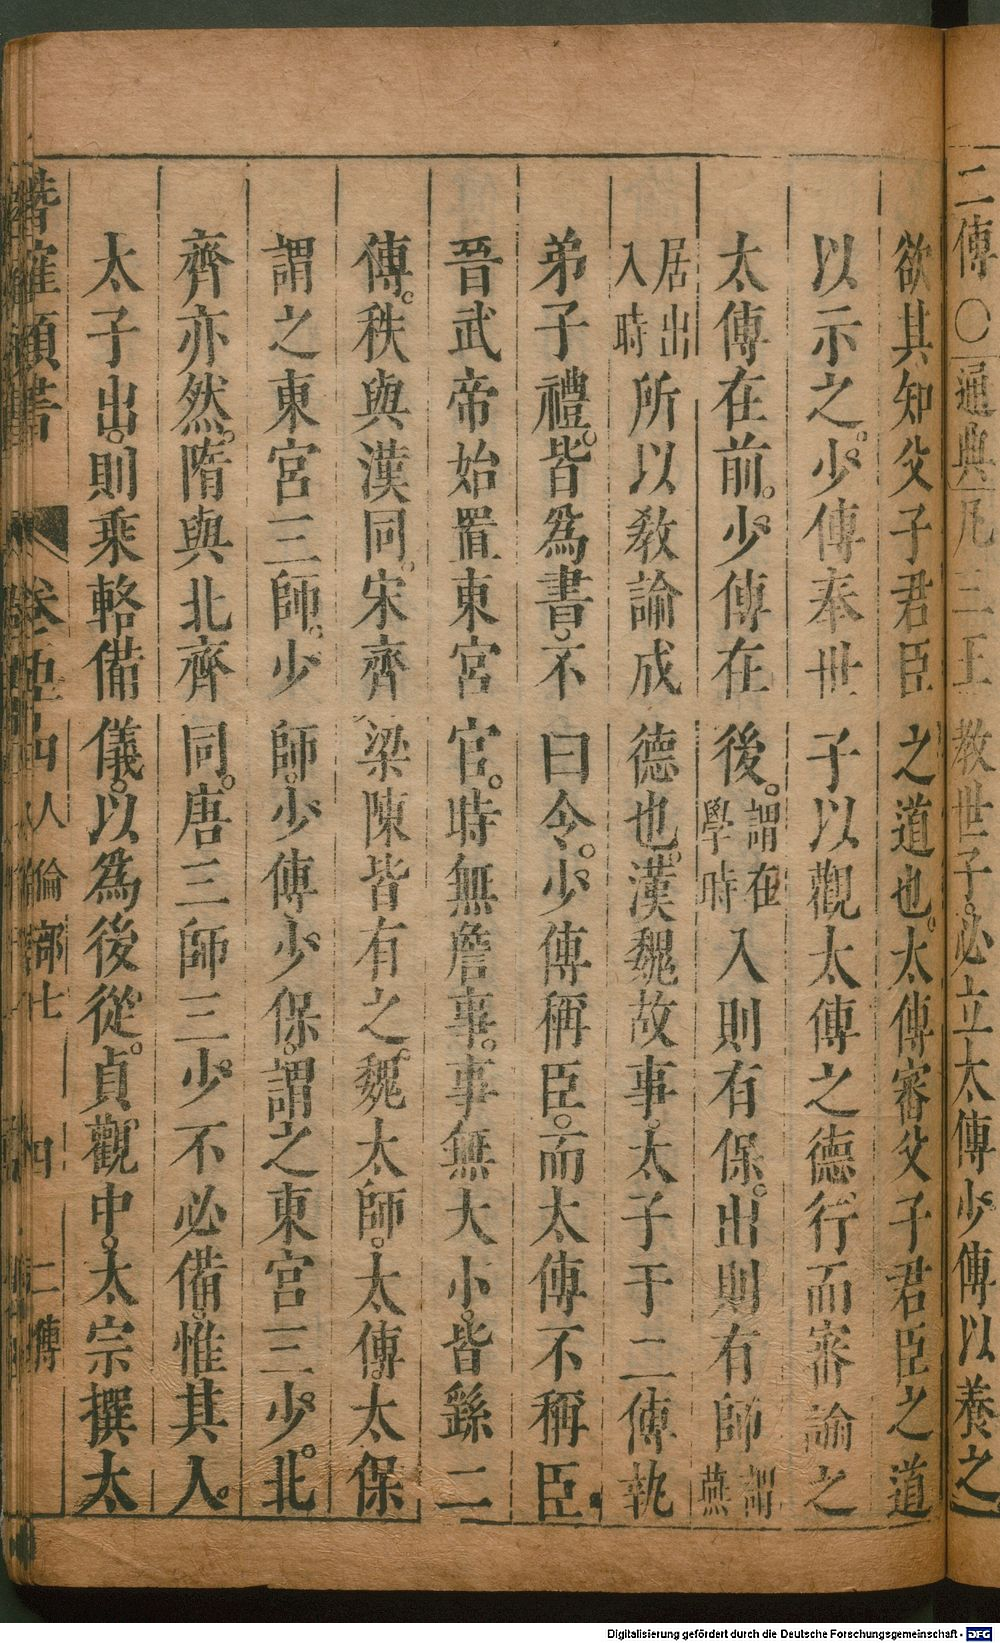 二傳 〇通典凡三王教世子。必立太傅少傅以養之
欲其知父子君臣之道也。太傅審父子君臣之道
以示之。少傅奉世子以觀太傅之德行而審諭之
太傅在前。少傅在後。謂在學時入則有保。出則有師謂燕
居出入時所以教諭成德也。漢魏故事。太子于二傅執
弟子禮。皆為書。不曰令。少傅稱臣。而太傅不稱臣
晉武帝始置東宮官。時無詹事。事無大小。皆繇二
傅。秩與漢同。宋齊梁陳皆有之。魏太師。太傅。太保
謂之東宮三師。少師。少傅。少保。謂之東宮三少。北
齊亦然。隋與北齊同。唐三師三少。不必備。惟其人。
太子出。則乘輅備儀。以為後從。貞觀中。太宗撰太
潛確類書 卷五四 人倫部七 四 二傅
Digitalisierung gefördert durch die Deutsche Forschungsgemeinschaft - DFG